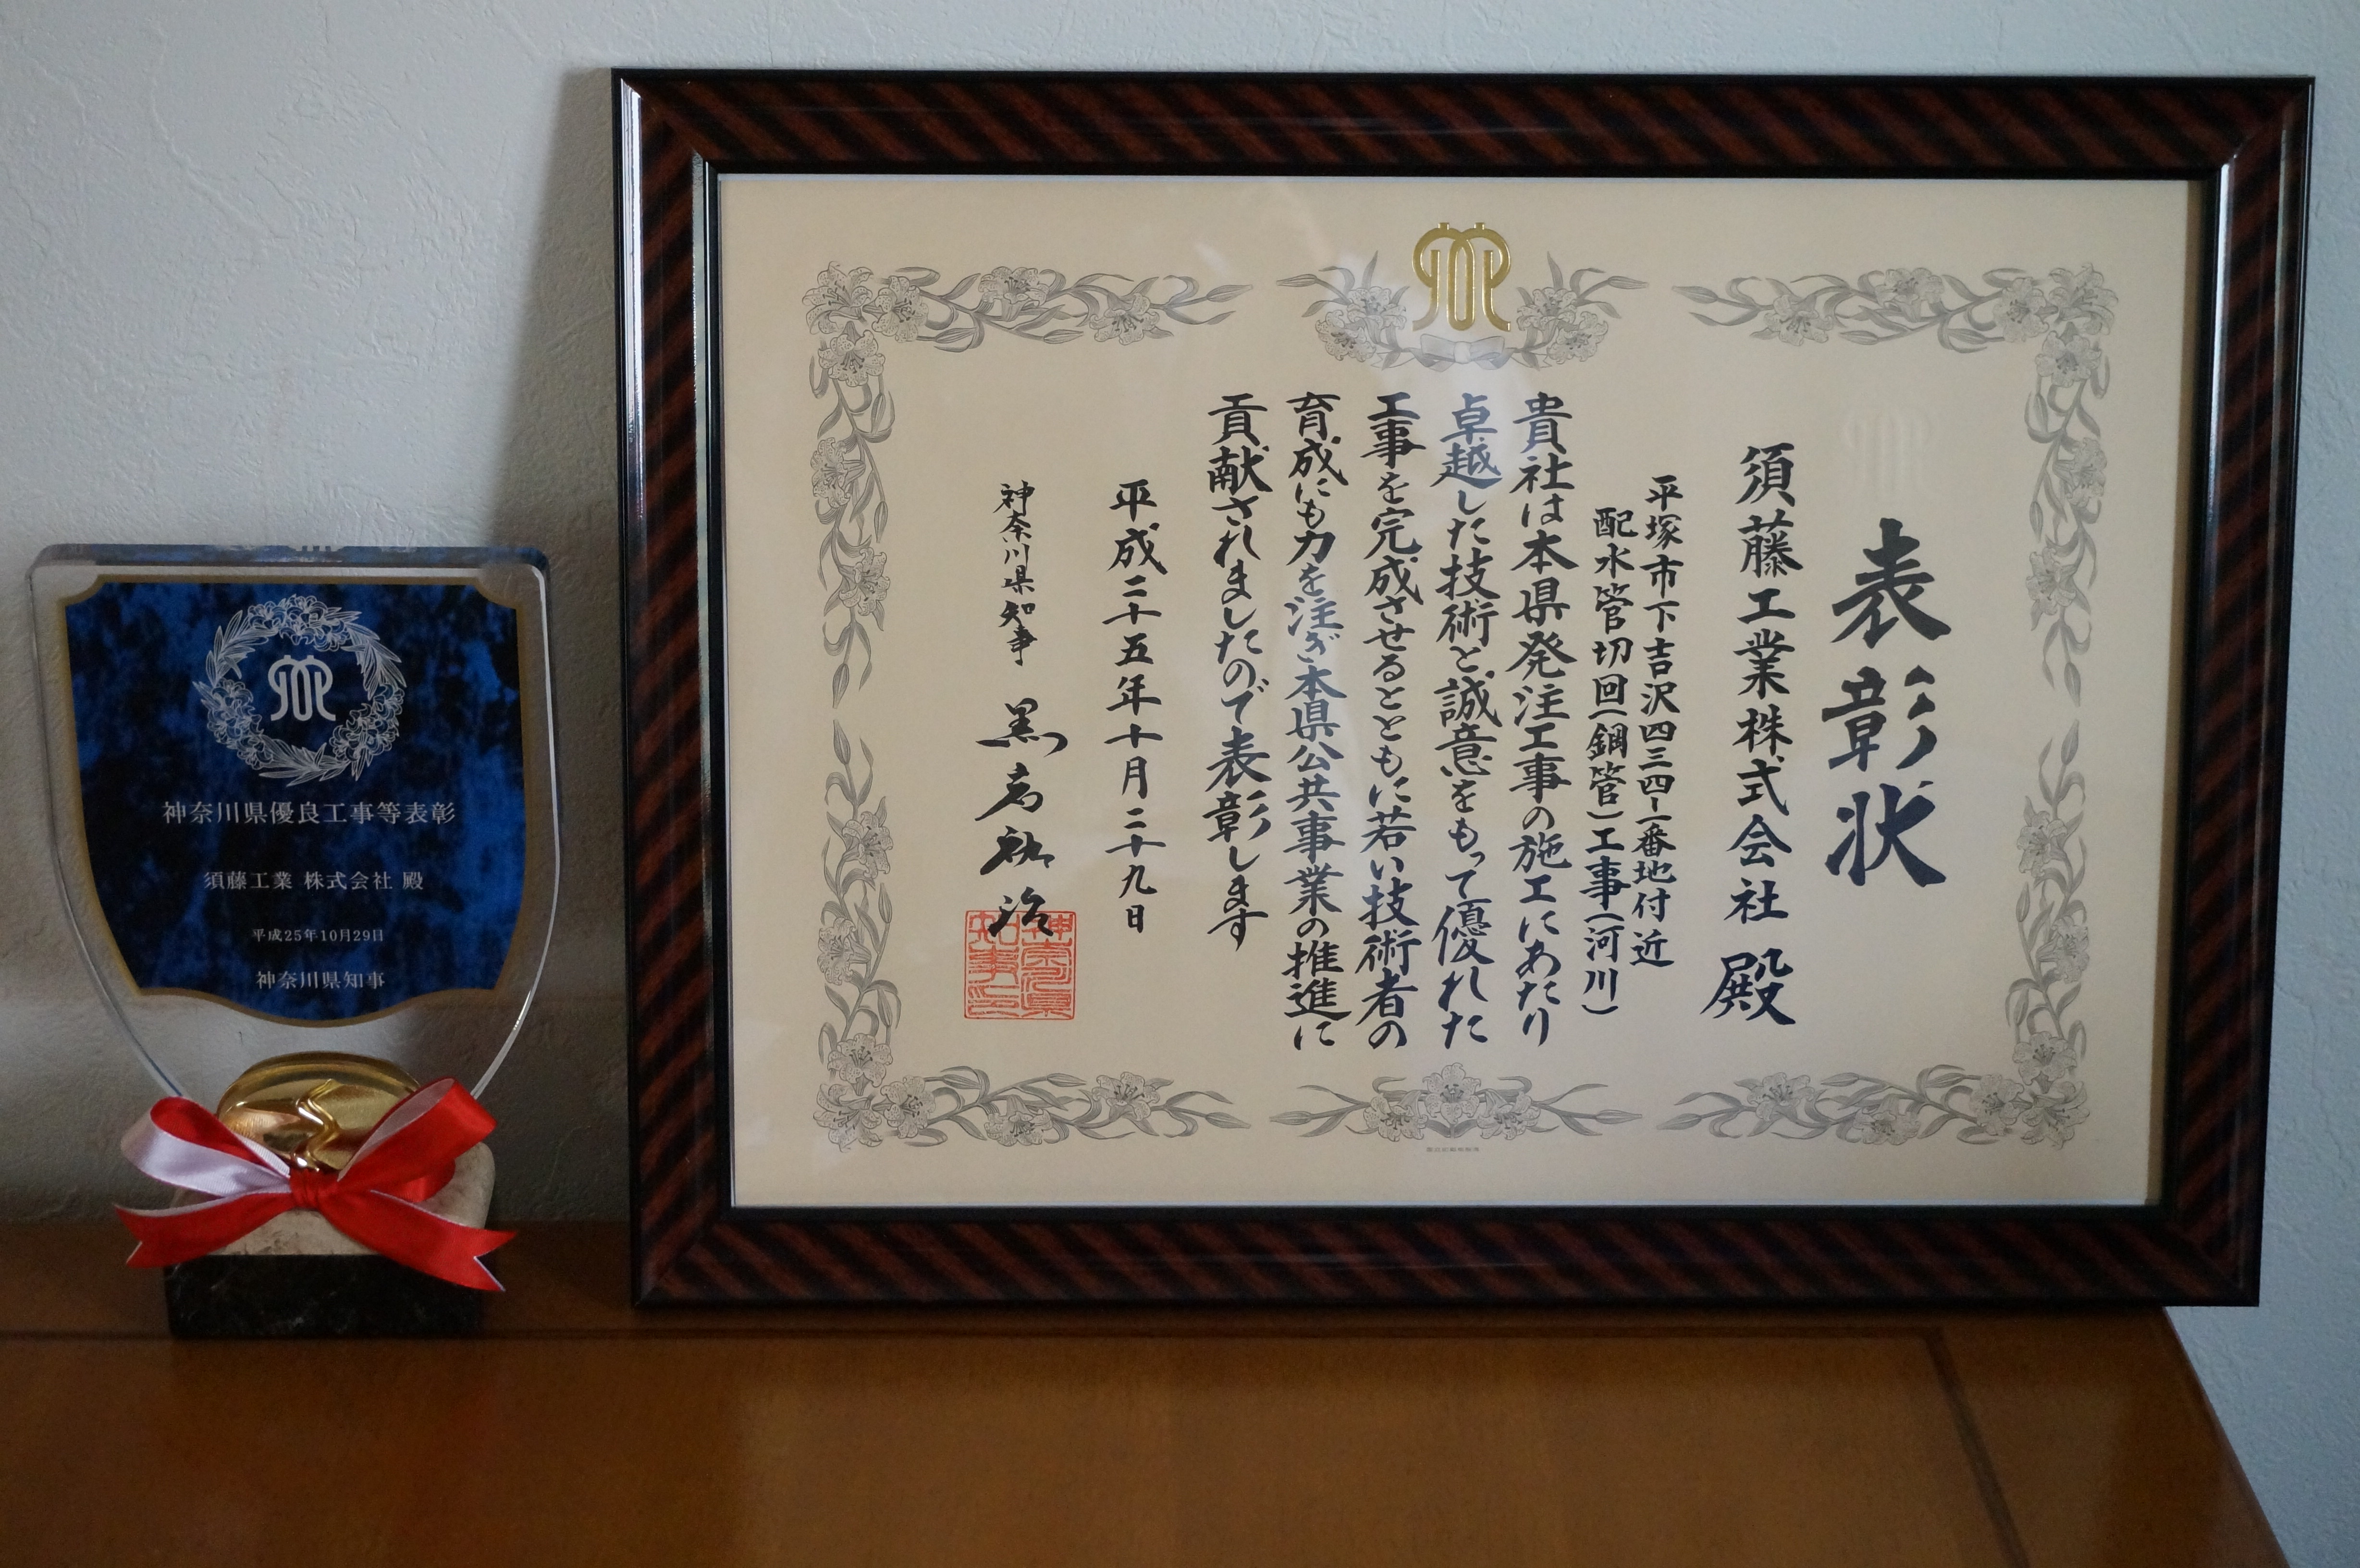 表彰状
須藤工業株式会社 殿
平塚市下吉沢四三四-一番地付近
配水管切回(鋼管)工事(河川)
貴社は本県発注工事の施工にあたり
卓越した技術と誠意をもって優れた
工事を完成させるとともに若い技術者の
育成にも力を注ぎ本県公共事業の推進に
貢献されましたので表彰します
平成二十五年十月二十九日
神奈川県知事 黒岩祐治
神奈川県
知事印
神奈川県優良工事等表彰
須藤工業 株式会社 殿
平成25年10月29日
神奈川県知事